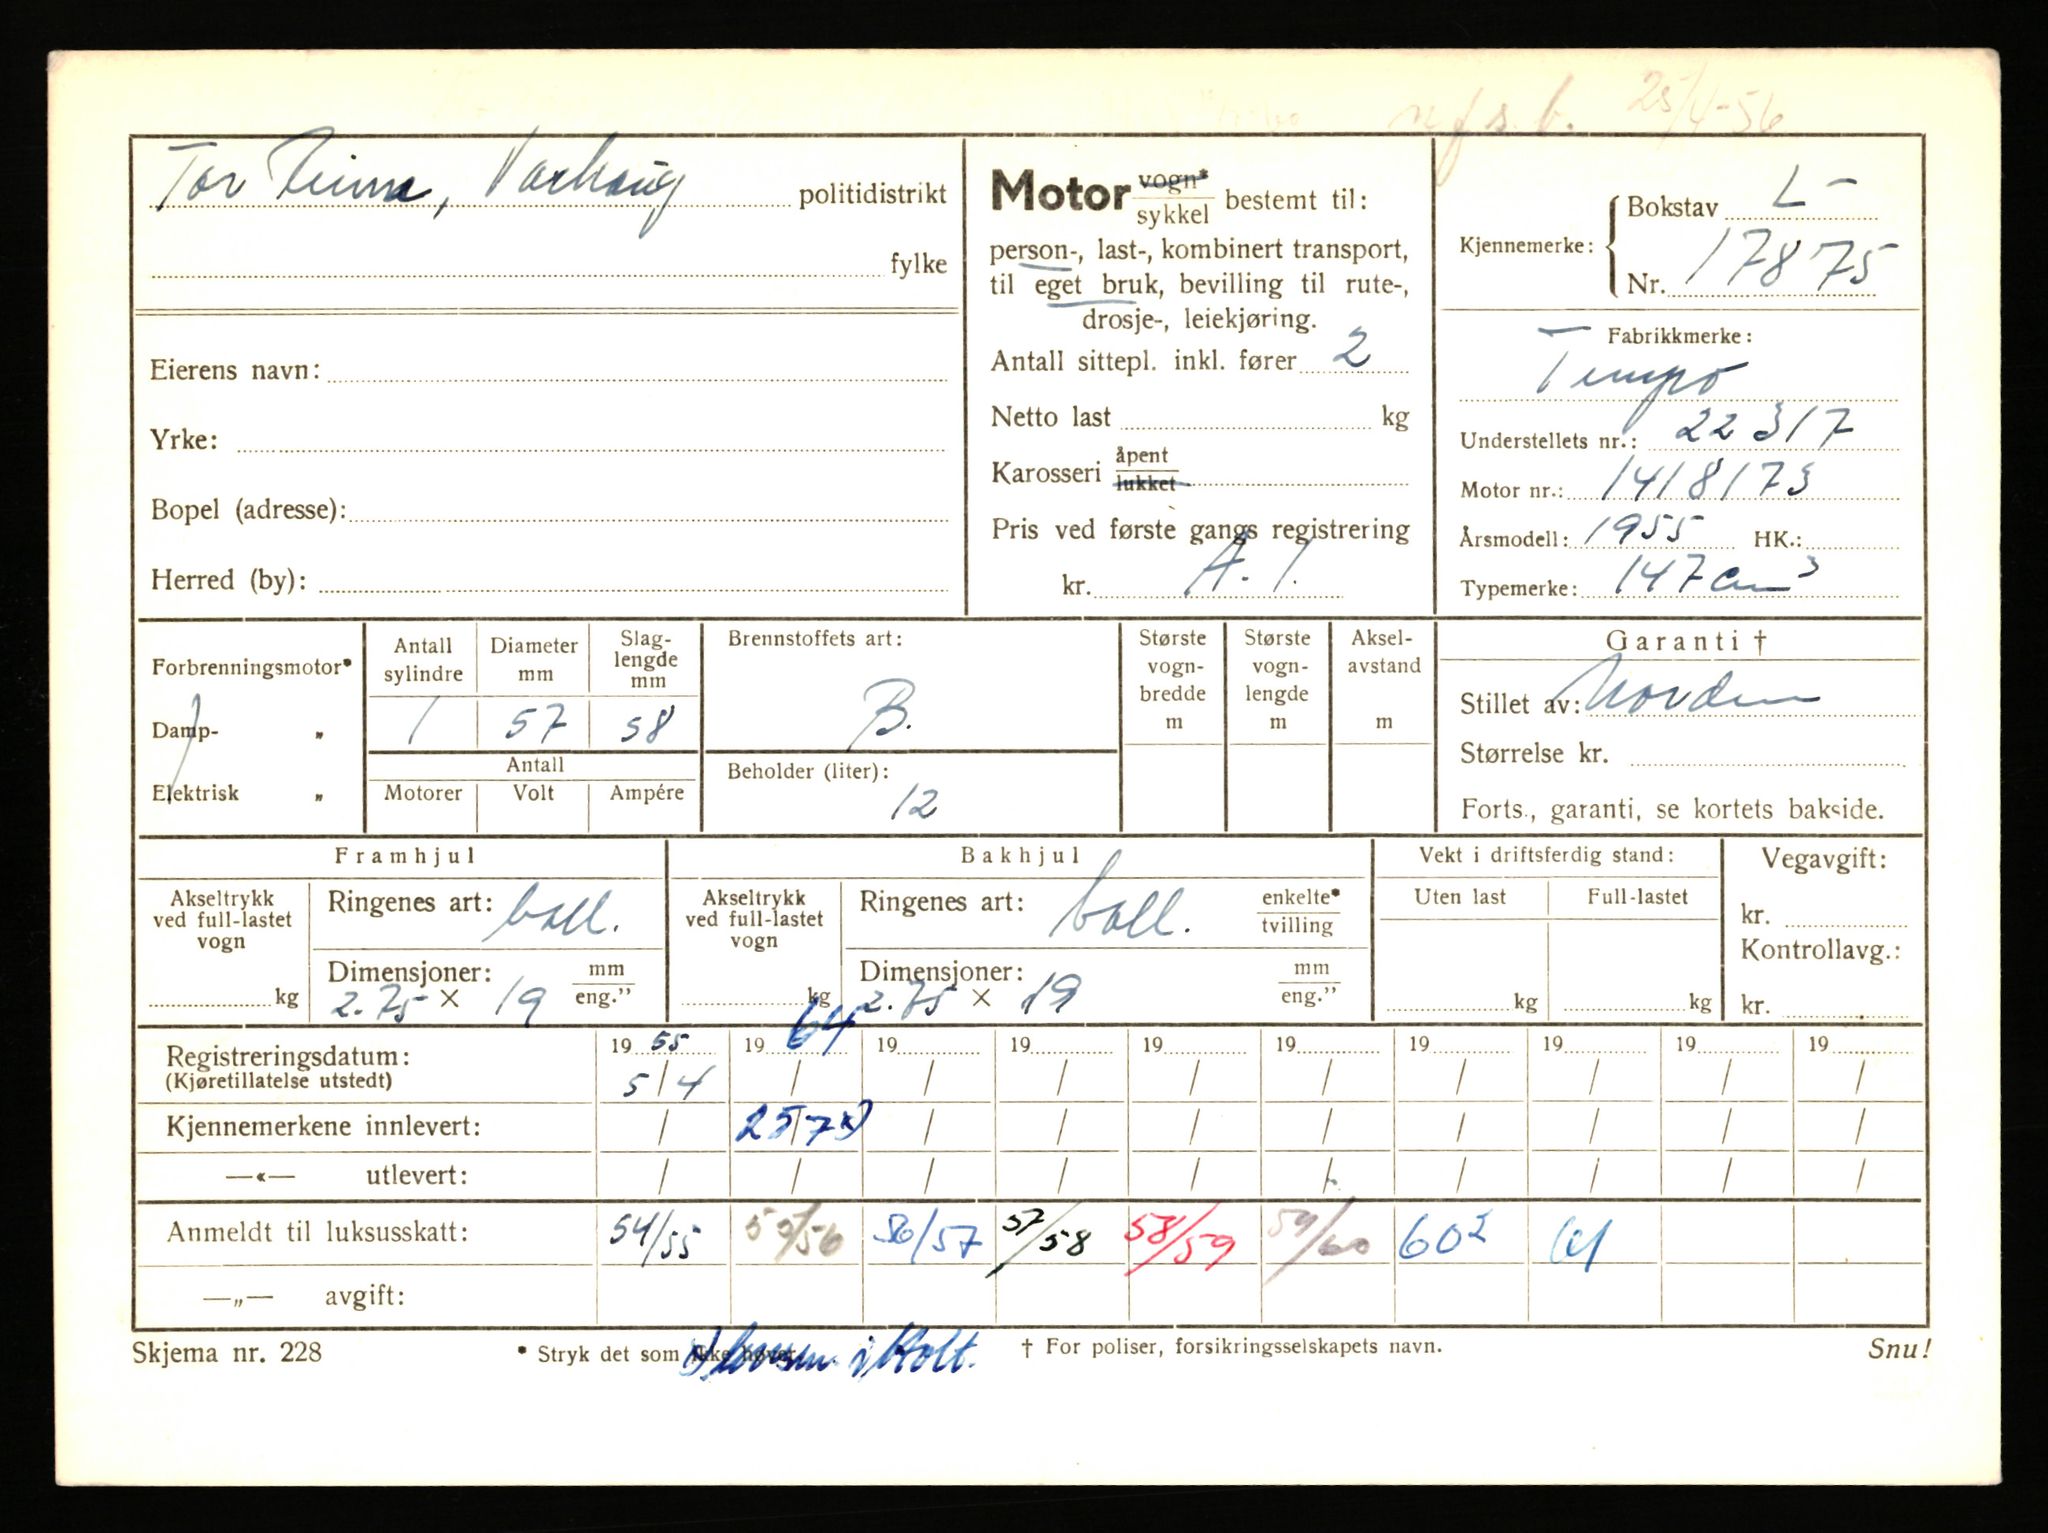 n f s. b. 25/4-56
Tor Reime, Varhaug politidistrikt
fylke
Eierens navn:
Yrke:
Bopel (adresse):
Herred (by):
Motor vogn* / sykkel bestemt til:
person-, last-, kombinert transport,
til eget bruk, bevilling til rute-,
drosje-, leiekjøring.
Antall sittepl. inkl. fører 2
Netto last kg
Karosseri åpent / lukket
Pris ved første gangs registrering
kr. A. 1.
Kjennemerke: Bokstav L-
Nr. 17875
Fabrikkmerke:
Tempo
Understellets nr.: 22317
Motor nr.: 1418173
Årsmodell: 1955 HK.:
Typemerke: 147 cm³
Forbrenningsmotor*
Damp- „
Elektrisk „
Antall sylindre 1
Diameter mm 57
Slag-lengde mm 58
Antall
Motorer Volt Ampére
Brennstoffets art:
B.
Beholder (liter):
12
Største vogn-bredde m
Største vogn-lengde m
Aksel-avstand m
Garanti †
Stillet av: Norden
Størrelse kr.
Forts., garanti, se kortets bakside.
Framhjul
Akseltrykk ved full-lastet vogn kg
Ringenes art: ball.
Dimensjoner: mm / eng."
2.75 × 19
Bakhjul
Akseltrykk ved full-lastet vogn kg
Ringenes art: ball. enkelte* / tvilling
Dimensjoner: mm / eng."
2.75 × 19
Vekt i driftsferdig stand:
Uten last Full-lastet
kg kg
Vegavgift:
kr.
Kontrollavg.:
kr.
Registreringsdatum: 19 55 19 64 19 19 19 19 19 19 19 19
(Kjøretillatelse utstedt) 5/4 / / / / / / / / /
Kjennemerkene innlevert: / 25/7 x) / / / / / / / /
—«— utlevert: / / / / / / / / / /
Anmeldt til luksusskatt: 54/55 55/56 56/57 57/58 58/59 59/60 60² 61
—„— avgift:
Skjema nr. 228 * Stryk det som ikke høver. † For poliser, forsikringsselskapets navn. Snu!
x) i Kolt.